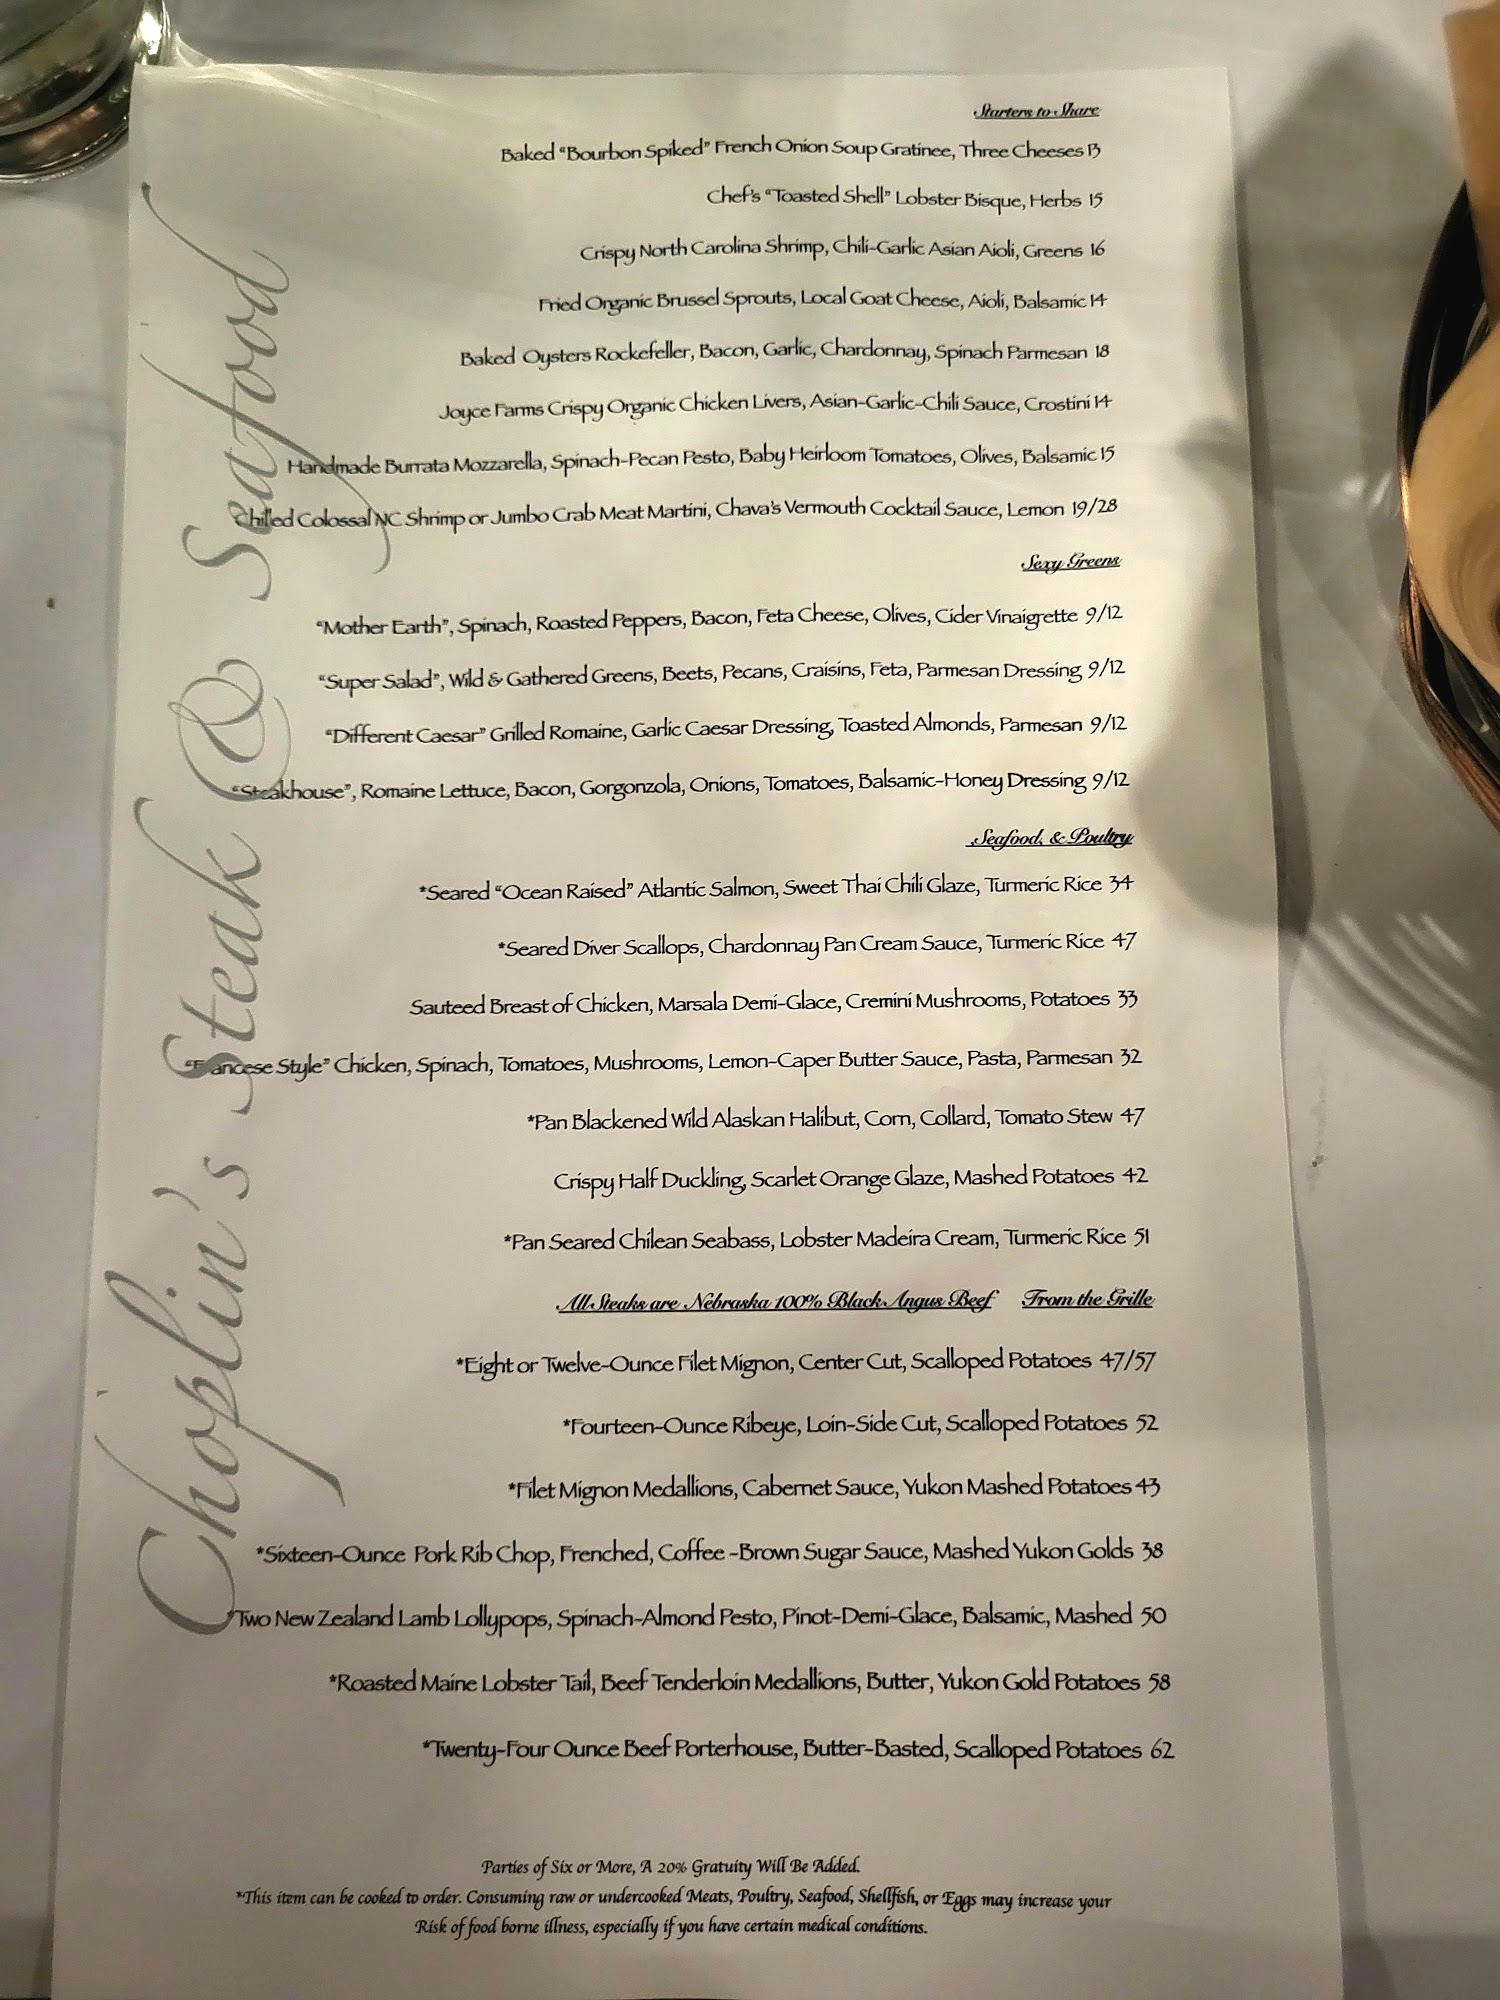 Choplin's Steak & Seafood
Starters to Share
Baked “Bourbon Spiked” French Onion Soup Gratinee, Three Cheeses 13
Chef's “Toasted Shell” Lobster Bisque, Herbs 15
Crispy North Carolina Shrimp, Chili-Garlic Asian Aioli, Greens 16
Fried Organic Brussel Sprouts, Local Goat Cheese, Aioli, Balsamic 14
Baked Oysters Rockefeller, Bacon, Garlic, Chardonnay, Spinach Parmesan 18
Joyce Farms Crispy Organic Chicken Livers, Asian-Garlic-Chili Sauce, Crostini 14
Handmade Burrata Mozzarella, Spinach-Pecan Pesto, Baby Heirloom Tomatoes, Olives, Balsamic 15
Chilled Colossal NC Shrimp or Jumbo Crab Meat Martini, Chava's Vermouth Cocktail Sauce, Lemon 19/28
Sexy Greens
“Mother Earth”, Spinach, Roasted Peppers, Bacon, Feta Cheese, Olives, Cider Vinaigrette 9/12
“Super Salad”, Wild & Gathered Greens, Beets, Pecans, Craisins, Feta, Parmesan Dressing 9/12
“Different Caesar” Grilled Romaine, Garlic Caesar Dressing, Toasted Almonds, Parmesan 9/12
“Steakhouse”, Romaine Lettuce, Bacon, Gorgonzola, Onions, Tomatoes, Balsamic-Honey Dressing 9/12
Seafood, & Poultry
*Seared “Ocean Raised” Atlantic Salmon, Sweet Thai Chili Glaze, Turmeric Rice 34
*Seared Diver Scallops, Chardonnay Pan Cream Sauce, Turmeric Rice 47
Sauteed Breast of Chicken, Marsala Demi-Glace, Cremini Mushrooms, Potatoes 33
“Francese Style” Chicken, Spinach, Tomatoes, Mushrooms, Lemon-Caper Butter Sauce, Pasta, Parmesan 32
*Pan Blackened Wild Alaskan Halibut, Corn, Collard, Tomato Stew 47
Crispy Half Duckling, Scarlet Orange Glaze, Mashed Potatoes 42
*Pan Seared Chilean Seabass, Lobster Madeira Cream, Turmeric Rice 51
All Steaks are Nebraska 100% Black Angus Beef From the Grille
*Eight or Twelve-Ounce Filet Mignon, Center Cut, Scalloped Potatoes 47/57
*Fourteen-Ounce Ribeye, Loin-Side Cut, Scalloped Potatoes 52
*Filet Mignon Medallions, Cabernet Sauce, Yukon Mashed Potatoes 43
*Sixteen-Ounce Pork Rib Chop, Frenched, Coffee -Brown Sugar Sauce, Mashed Yukon Golds 38
*Two New Zealand Lamb Lollypops, Spinach-Almond Pesto, Pinot-Demi-Glace, Balsamic, Mashed 50
*Roasted Maine Lobster Tail, Beef Tenderloin Medallions, Butter, Yukon Gold Potatoes 58
*Twenty-Four Ounce Beef Porterhouse, Butter-Basted, Scalloped Potatoes 62
Parties of Six or More, A 20% Gratuity Will Be Added.
*This item can be cooked to order. Consuming raw or undercooked Meats, Poultry, Seafood, Shellfish, or Eggs may increase your
Risk of food borne illness, especially if you have certain medical conditions.